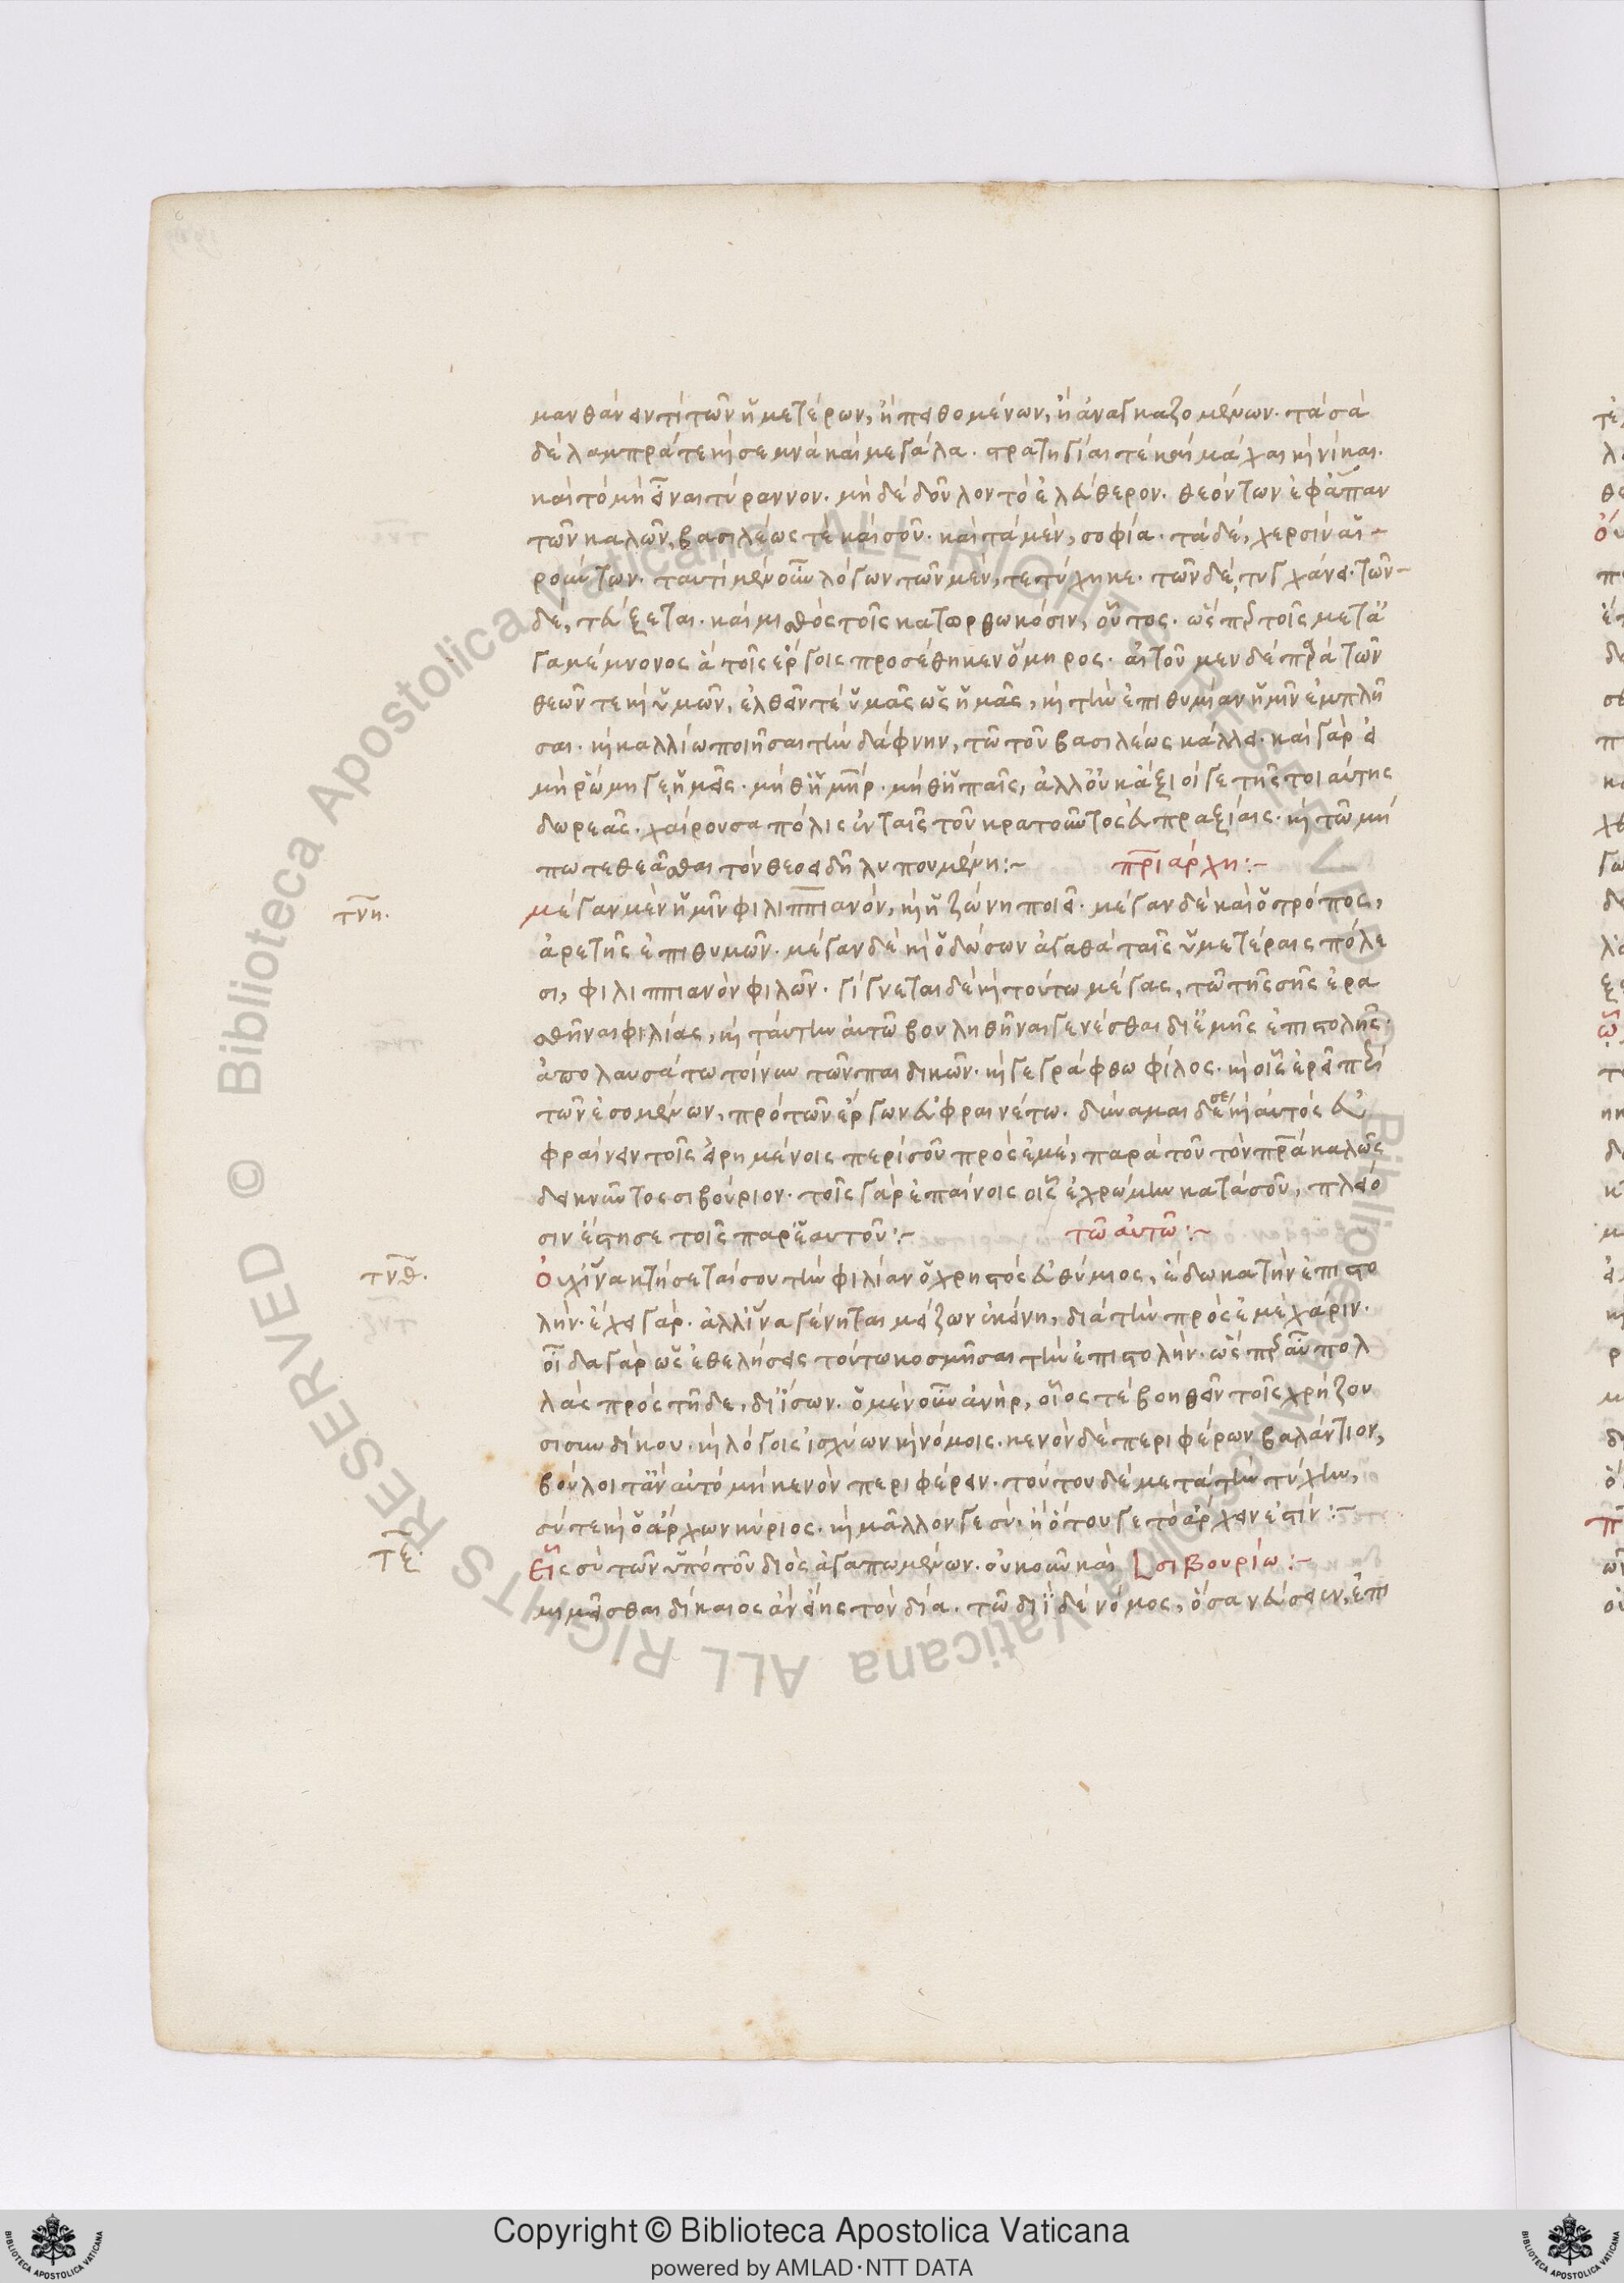 μανθάνειν τί τῶν ἡμετέρων, ἢ πειθομένων, ἢ ἀναγκαζομένων. τὰ σὰ
δὲ λαμπρά τε καὶ σεμνὰ καὶ μεγάλα. στρατηγίαι τὲ καὶ μάχαι καὶ νίκαι.
καὶ τὸ μὴ εἶναι τύραννον. μὴ δὲ δοῦλον τὸ ἐλεύθερον. θεόντων ἐφάπαν
τῶν καλῶν, βασιλέως τὲ καὶ σοῦ. καὶ τὰ μὲν, σοφία. τὰ δὲ, χερσὶν αἰ-
ρομένων. ταυτὶ μὲν οὖν λόγων τῶν μὲν, τετύχηκε. τῶν δὲ, τυγχάνει. τῶν
δὲ, τεύξεται. καὶ μισθὸς τοῖς κατωρθωκόσιν, οὗτος. ὥσπερ τοῖς μετὰ
γαμέμνονος ἃ τοῖς ἔργοις προσέθηκεν ὅμηρος. αἰτοῦμεν δὲ παρὰ τῶν
θεῶν τε καὶ ὑμῶν, ἐλθεῖν τὲ ὑμᾶς ὡς ἡμᾶς, καὶ τὴν ἐπιθυμίαν ἡμῖν ἐμπλῆ
σαι. καὶ καλλίω ποιῆσαι τὴν δάφνην, τῶ τοῦ βασιλέως κάλλει. καὶ γὰρ εἰ
μὴ ῥώμη γε ἡμεῖς. μήθ' ἡ μήτηρ. μήθ' ἡ παῖς, ἀλλ' οὐκ ἀξιοί γε τῆς τοιαύτης
δωρεᾶς. χαίρουσα πόλις ἐν ταῖς τοῦ κρατοῦντος εὐπραξίαις. καὶ τῶ μή
πω τεθεᾶσθαι τὸν θεοειδῆ λυπουμένη:~ πριαρχη:~
τνη. μέγαν μὲν ἡμῖν φιλιππιανὸν, καὶ ἡ ζώνη ποιεῖ. μέγαν δὲ καὶ ὁ τρόπος,
ἀρετῆς ἐπιθυμῶν. μέγαν δὲ καὶ ὁ δώσων ἀγαθὰ ταῖς ὑμετέραις πόλε
σι, φιλιππιανὸν φιλῶν. γίγνεται δὲ καὶ τούτω μέγας, τῶ τῆς σῆς ἐρα
σθῆναι φιλίας, καὶ ταύτην αὐτῶ βουληθῆναι γενέσθαι δι' ἐμῆς ἐπιστολῆς.
ἀπολαυσάτω τοίνυν τῶν παιδικῶν. καὶ γεγράφθω φίλος. καὶ οἷς ἐρεῖ περὶ
τῶν ἐσομένων, πρὸ τῶν ἔργων εὐφραινέτω. δύναμαι δέ σε καὶ αὐτὸς εὐ
φραίνειν τοῖς εἰρημένοις περὶ σοῦ πρὸς ἐμέ, παρὰ τοῦ τὸν πατέρα καλῶς
δεικνύντος σιβούριον. τοῖς γὰρ ἐπαίνοις οἷς ἐχρώμην κατὰ σοῦ, πλείο
σιν ἔστησε τοῖς παρ' ἑαυτοῦ:~ τῶ αὐτῶ:~
τνθ. Οὐχ ἵνα κτήσεταί σου τὴν φιλίαν ὁ χρηστὸς εὐθύμιος, ἔδωκα τὴν ἐπιστο
λὴν. ἔχει γὰρ. ἀλλ' ἵνα γένηται μείζων ἐκείνη, διὰ τὴν πρὸς ἐμὲ χάριν.
οἶδα γὰρ ὡς ἐθελήσεις τούτω κοσμῆσαι τὴν ἐπιστολὴν. ὥσπερ αὖ πολ
λὰς πρὸς τῆδε, δι' ἴσων. ὁ μὲν οὖν ἀνὴρ, οἷος τὲ βοηθεῖν τοῖς χρήζου
σι συνδίκου. καὶ λόγοις ἰσχύων καὶ νόμοις. κενὸν δὲ περιφέρων βαλάντιον,
βούλοιτ' ἂν αὐτὸ μὴ κενὸν περιφέρειν. τούτου δὲ μετὰ τὴν τύχην,
σύ τε καὶ ὁ ἄρχων κύριος. καὶ μᾶλλον γε σὺ. ἢ ὅτου γε τὸ ἄρχειν ἐστίν:~
τξ. Εἷς σὺ τῶν ὑπὸ τοῦ διὸς ἀγαπωμένων. οὐκοῦν καὶ σιβουρίω:~
μιμεῖσθαι δίκαιος ἂν εἴης τὸν δία. τῶ διῒ δὲ νόμος, ὅσα νεύσειεν, ἐπι
Copyright © Biblioteca Apostolica Vaticana
powered by AMLAD·NTT DATA